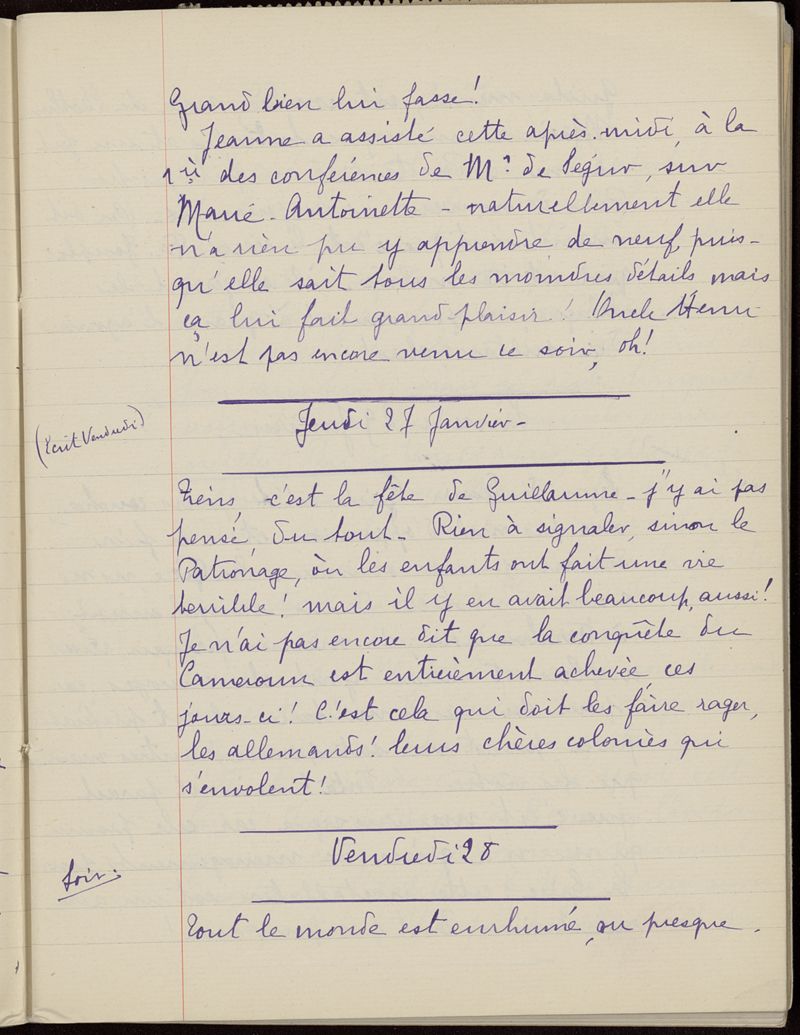 Grand bien lui fasse!
Jeanne a assisté cette après-midi, à la
1ère des conférences de Mr de Ségur, sur
Marie-Antoinette - naturellement elle
n'a rien pu y apprendre de neuf, puis-
qu'elle sait tous les moindres détails, mais
ça lui fait grand plaisir! Oncle Henri
n'est pas encore venu ce soir, oh!
Jeudi 27 Janvier -
(Écrit Vendredi)
Tiens, c'est la fête de Guillaume - j'y ai pas
pensé, du tout - Rien à signaler, sinon le
Patronage, où les enfants ont fait une vie
terrible! mais il y en avait beaucoup, aussi!
Je n'ai pas encore dit que la conquête du
Cameroun est entièrement achevée, ces
jours-ci! C'est cela qui doit les faire rager,
les allemands! leurs chères colonies qui
s'envolent!
Vendredi 28
Soir:
Tout le monde est enrhumé, ou presque.